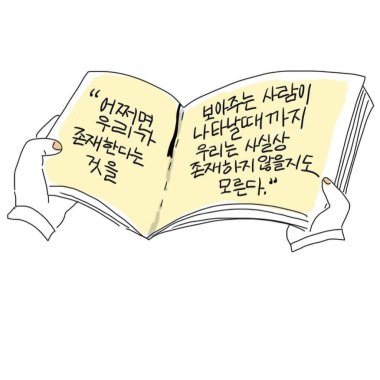 “어쩌면
우리가
존재한다는
것을
보아주는 사람이
나타날때까지
우리는 사실상
존재하지 않을지도
모른다.”